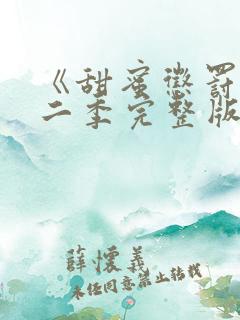 《甜蜜懲罰
二季完整版
薛懷義
未经同意禁止转载